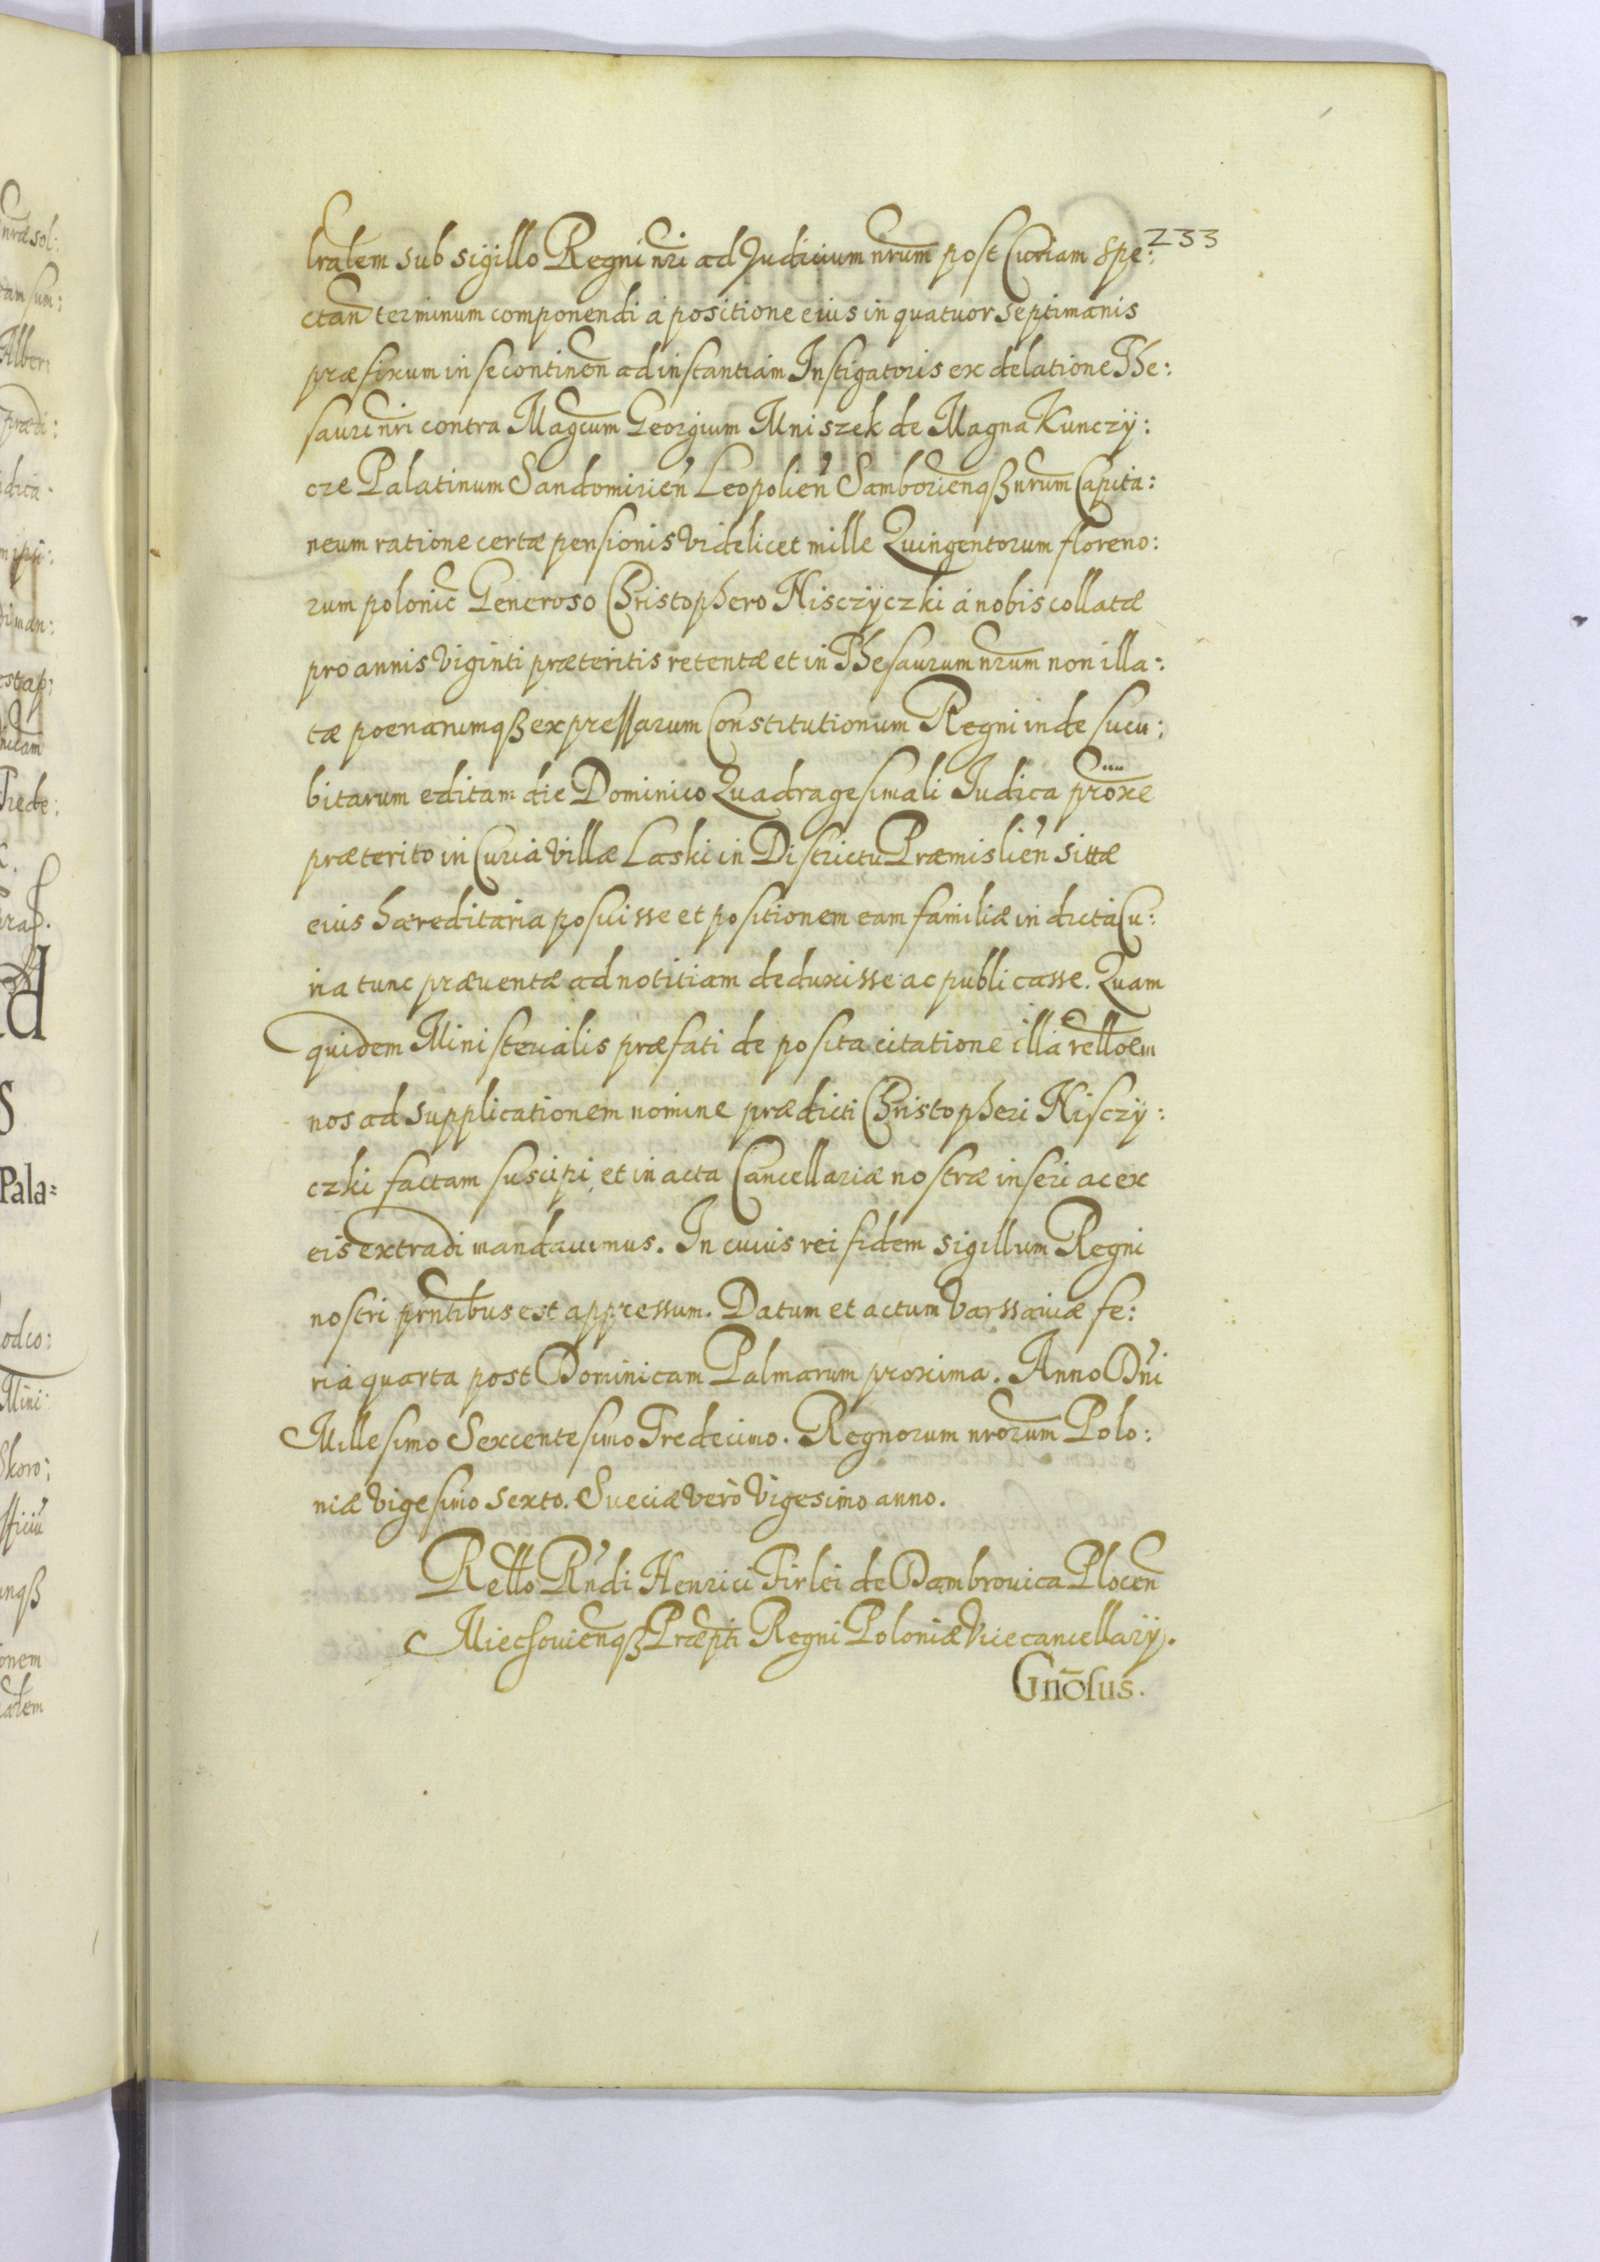 233
lralem sub sigillo Regni nri ad Judicium nrum post Curiam spe:
ctan terminum componendi à positione eius in quatuor septimanis
præfixum in se continen ad instantiam Instigatoris ex delatione The:
sauri nri contra Magcum Georgium Mniszek de Magna Kunczÿ:
cze Palatinum Sandomirien Leopolien Samborienqß nrum Capita:
neum ratione certæ pensionis videlicet mille Quingentorum floreno:
rum polonic Generoso Christophero Hisczÿczki à nobis collatæ
pro annis viginti præteritis retentæ et in Thesaurum nrum non illa:
tæ poenarumqß expressarum Constitutionum Regni inde sucu:
bitarum editam die Dominico Quadragesimali Judica proxe
præterito in Curia villæ Laski in Districtu Præmislien sittæ
eius hæreditaria posuisse et positionem eam familiæ in dicta Cu:
ria tunc præuentæ ad notitiam deduxisse ac publicasse. Quam
quidem Ministerialis præfati de posita citatione illa relloem
nos ad supplicationem nomine prædicti Christopheri Hisczÿ:
czki factam suscipi et in acta Cancellariæ nostræ inseri ac ex
eis extradi mandauimus. In cuius rei fidem sigillum Regni
nostri prntibus est appressum. Datum et actum Varssauiæ fe:
ria quarta post Dominicam Palmarum proxima. Anno Dni
Millesimo Sexcentesimo Tredecimo. Regnorum nrorum Polo:
niæ vigesimo sexto. Sueciæ verò vigesimo anno.
Rello Rndi Henrici Firlei de Dambrouica Plocen
Miechouienqß Præpti Regni Poloniæ Vicecancellarÿ.
Gnosus.